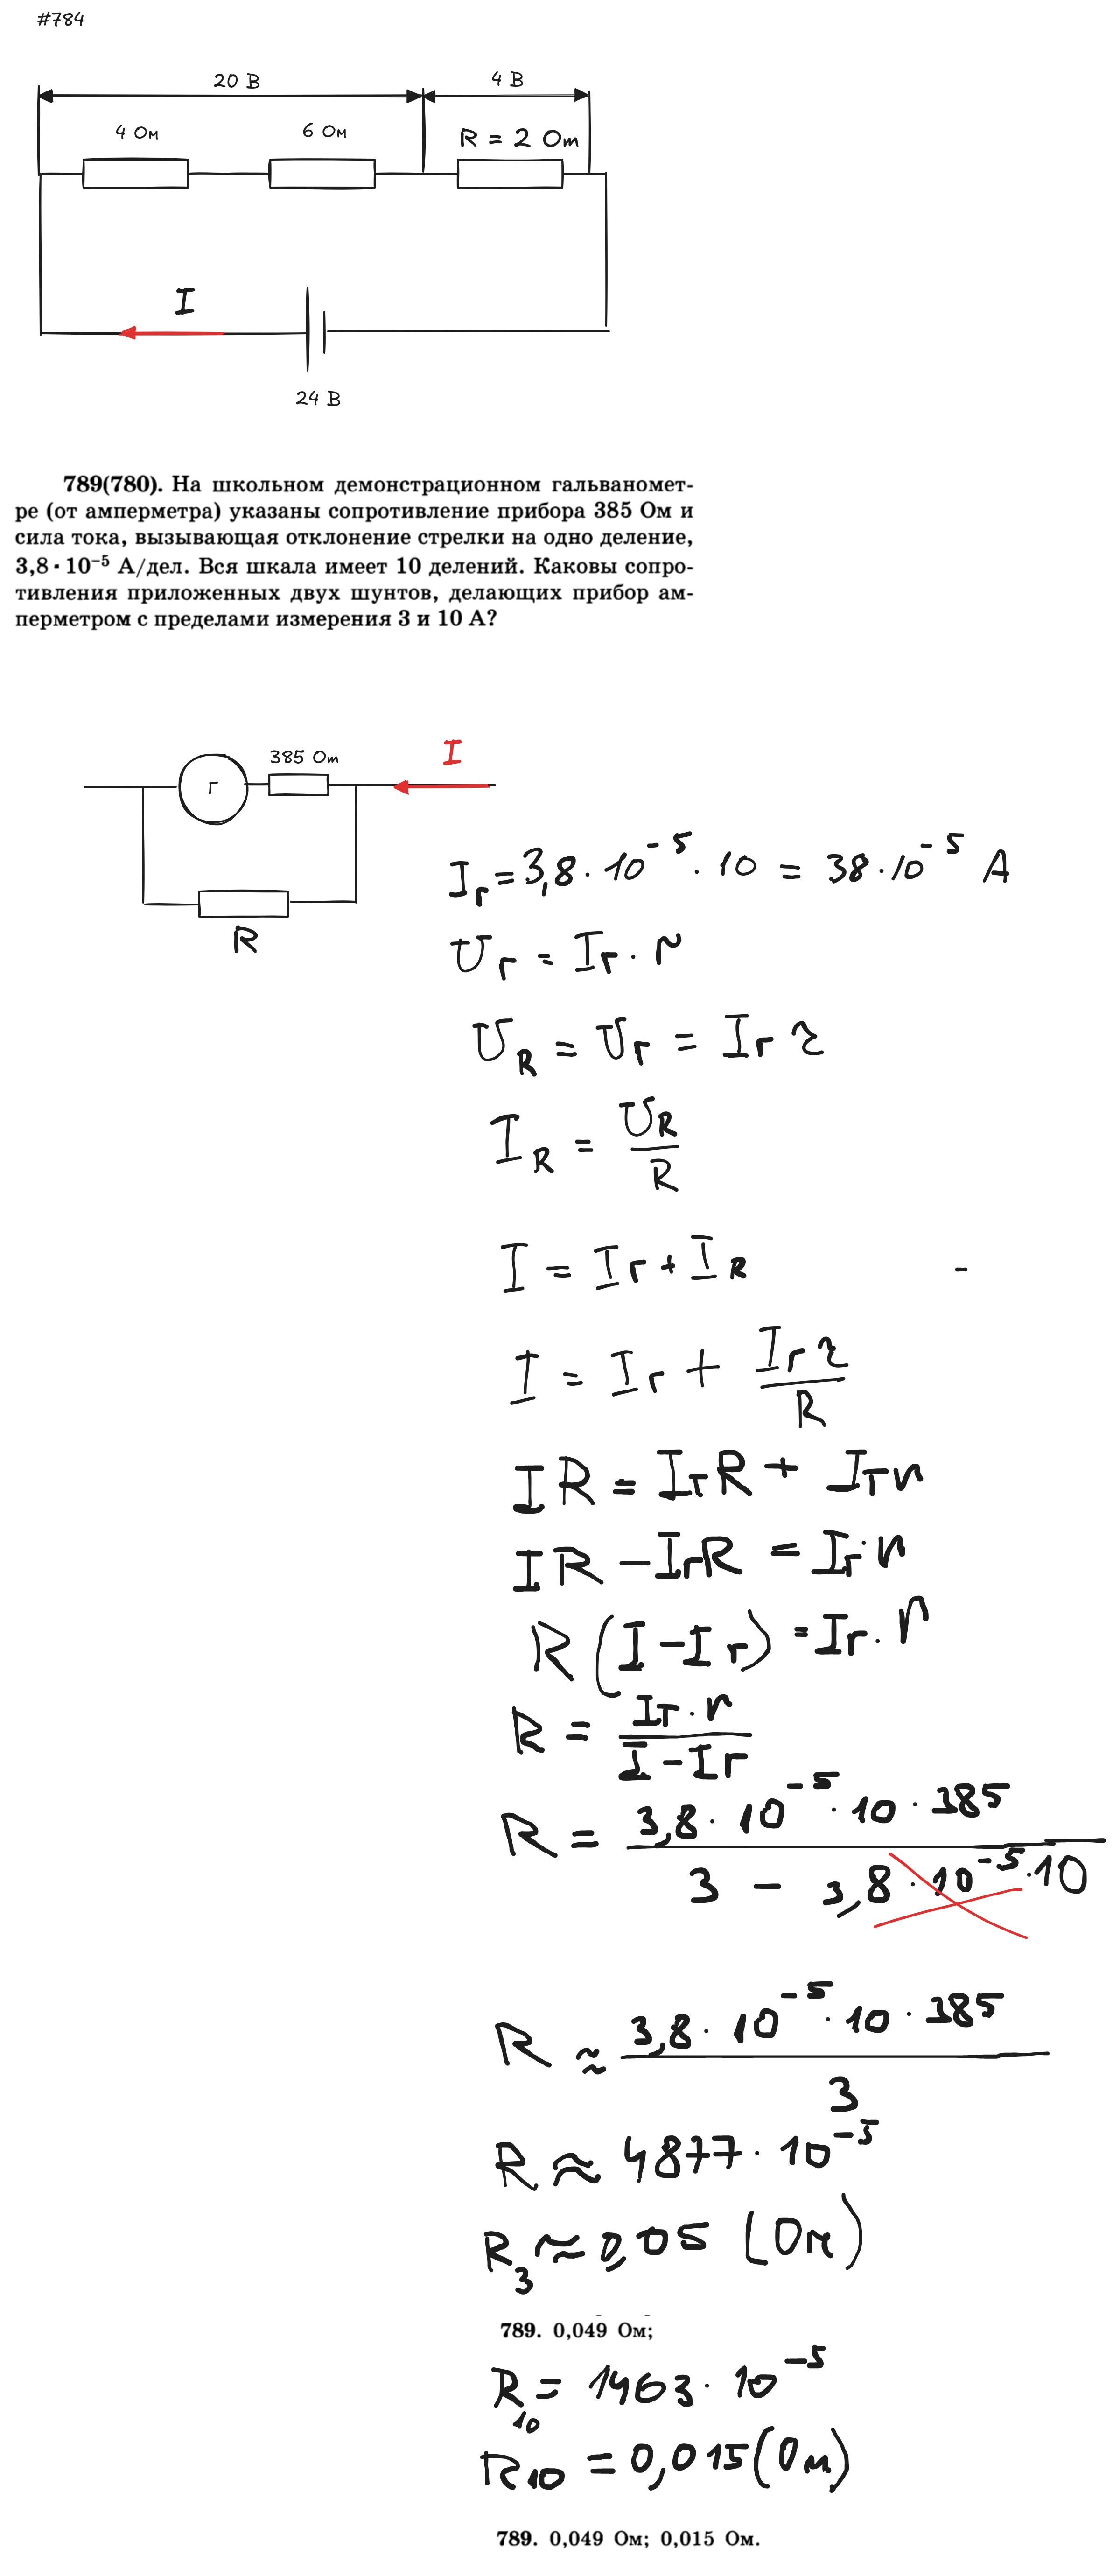 #784
20 В 4 В
4 Ом 6 Ом R = 2 Ом
I
24 В
789(780). На школьном демонстрационном гальваномет-
ре (от амперметра) указаны сопротивление прибора 385 Ом и
сила тока, вызывающая отклонение стрелки на одно деление,
3,8 · 10⁻⁵ А/дел. Вся шкала имеет 10 делений. Каковы сопро-
тивления приложенных двух шунтов, делающих прибор ам-
перметром с пределами измерения 3 и 10 А?
385 Ом I
Г
R
Iг = 3,8 · 10⁻⁵ · 10 = 38 · 10⁻⁵ А
Uг = Iг · r
U_R = Uг = Iг r
I_R = U_R / R
I = Iг + I_R -
I = Iг + Iг r / R
I R = Iг R + Iг r
I R - Iг R = Iг · r
R (I - Iг) = Iг · r
R = Iг · r / I - Iг
R = 3,8 · 10⁻⁵ · 10 · 385 / 3 - 3,8 · 10⁻⁵ · 10
R ≈ 3,8 · 10⁻⁵ · 10 · 385 / 3
R ≈ 4877 · 10⁻⁵
R₃ ≈ 0,05 (Ом)
789. 0,049 Ом;
R₁₀ = 1463 · 10⁻⁵
R₁₀ = 0,015 (Ом)
789. 0,049 Ом; 0,015 Ом.